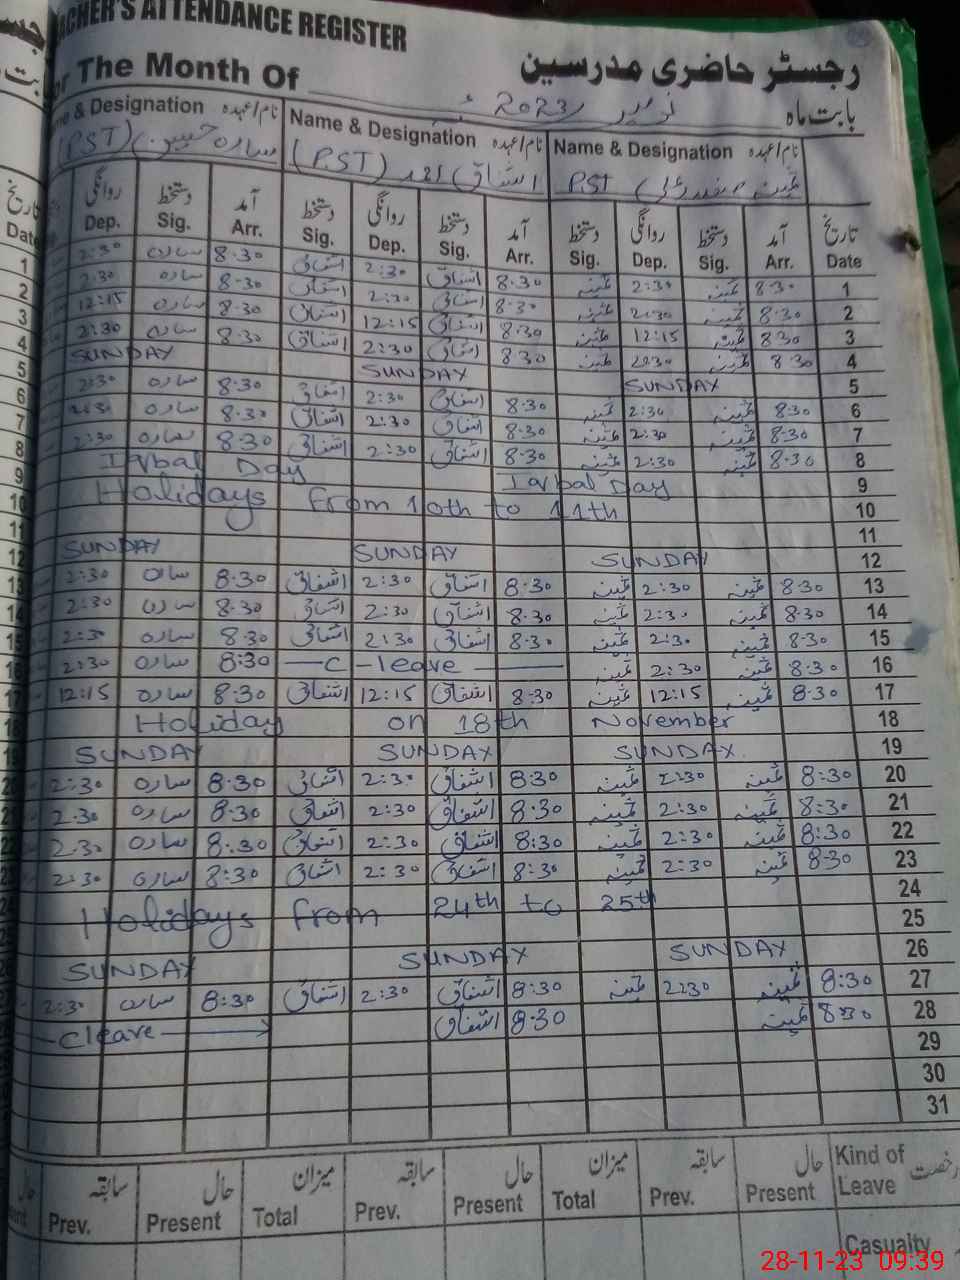 TEACHER'S ATTENDANCE REGISTER
رجسٹر حاضری مدرسین
The Month Of نومبر 2023ء بابت ماہ
Designation نام/عہدہ Name & Designation نام/عہدہ Name & Designation نام/عہدہ
سارہ حسین (PST) اشفاق احمد (PST) ثمینہ PST
تاریخ روانگی دستخط آمد دستخط روانگی دستخط آمد دستخط روانگی دستخط آمد تاریخ
Date Dep. Sig. Arr. Sig. Dep. Sig. Arr. Sig. Dep. Sig. Arr. Date
1 2:30 سارہ 8:30 اشفاق 2:30 اشفاق 8:30 ثمینہ 2:30 ثمینہ 8:30 1
2 2:30 سارہ 8:30 اشفاق 2:30 اشفاق 8:30 ثمینہ 2:30 ثمینہ 8:30 2
3 12:15 سارہ 8:30 اشفاق 12:15 اشفاق 8:30 ثمینہ 12:15 ثمینہ 8:30 3
4 2:30 سارہ 8:30 اشفاق 2:30 اشفاق 8:30 ثمینہ 2:30 ثمینہ 8:30 4
5 SUNDAY SUNDAY SUNDAY 5
6 2:30 سارہ 8:30 اشفاق 2:30 اشفاق 8:30 ثمینہ 2:30 ثمینہ 8:30 6
7 2:30 سارہ 8:30 اشفاق 2:30 اشفاق 8:30 ثمینہ 2:30 ثمینہ 8:30 7
8 2:30 سارہ 8:30 اشفاق 2:30 اشفاق 8:30 ثمینہ 2:30 ثمینہ 8:30 8
9 Iqbal Day Iqbal Day 9
10 Holidays from 10th to 11th 10
11 11
12 SUNDAY SUNDAY SUNDAY 12
13 2:30 سارہ 8:30 اشفاق 2:30 اشفاق 8:30 ثمینہ 2:30 ثمینہ 8:30 13
14 2:30 سارہ 8:30 اشفاق 2:30 اشفاق 8:30 ثمینہ 2:30 ثمینہ 8:30 14
15 2:30 سارہ 8:30 اشفاق 2:30 اشفاق 8:30 ثمینہ 2:30 ثمینہ 8:30 15
16 2:30 سارہ 8:30 C-leave ثمینہ 2:30 ثمینہ 8:30 16
17 12:15 سارہ 8:30 اشفاق 12:15 اشفاق 8:30 ثمینہ 12:15 ثمینہ 8:30 17
18 Holiday on 18th November 18
19 SUNDAY SUNDAY SUNDAY 19
20 2:30 سارہ 8:30 اشفاق 2:30 اشفاق 8:30 ثمینہ 2:30 ثمینہ 8:30 20
2:30 سارہ 8:30 اشفاق 2:30 اشفاق 8:30 ثمینہ 2:30 ثمینہ 8:30 21
2:30 سارہ 8:30 اشفاق 2:30 اشفاق 8:30 ثمینہ 2:30 ثمینہ 8:30 22
2:30 سارہ 8:30 اشفاق 2:30 اشفاق 8:30 ثمینہ 2:30 ثمینہ 8:30 23
Holidays from 24th to 25th 24
25
SUNDAY SUNDAY SUNDAY 26
2:30 سارہ 8:30 اشفاق 2:30 اشفاق 8:30 ثمینہ 2:30 ثمینہ 8:30 27
C leave اشفاق 8:30 ثمینہ 8:30 28
29
30
31
حال سابقہ حال میزان سابقہ حال میزان سابقہ حال Kind of رخصت
Prev. Present Total Prev. Present Total Prev. Present Leave
Casualty
28-11-23 09:39